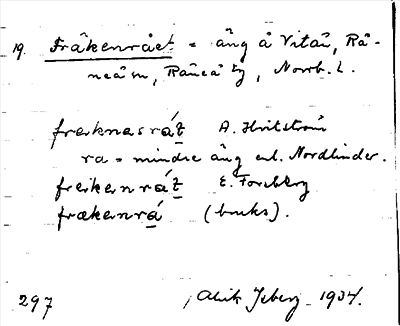 19. Fräkenrået = äng å Vitån, Rå-
neåsn, Råneå tg, Norrb. L.
fræknasrát A. Hvitström
ra = mindre äng enl. Nordlinder.
freikenrát E. Forsberg
frækenrá (bruks).
297 Alrik Isberg 1934.